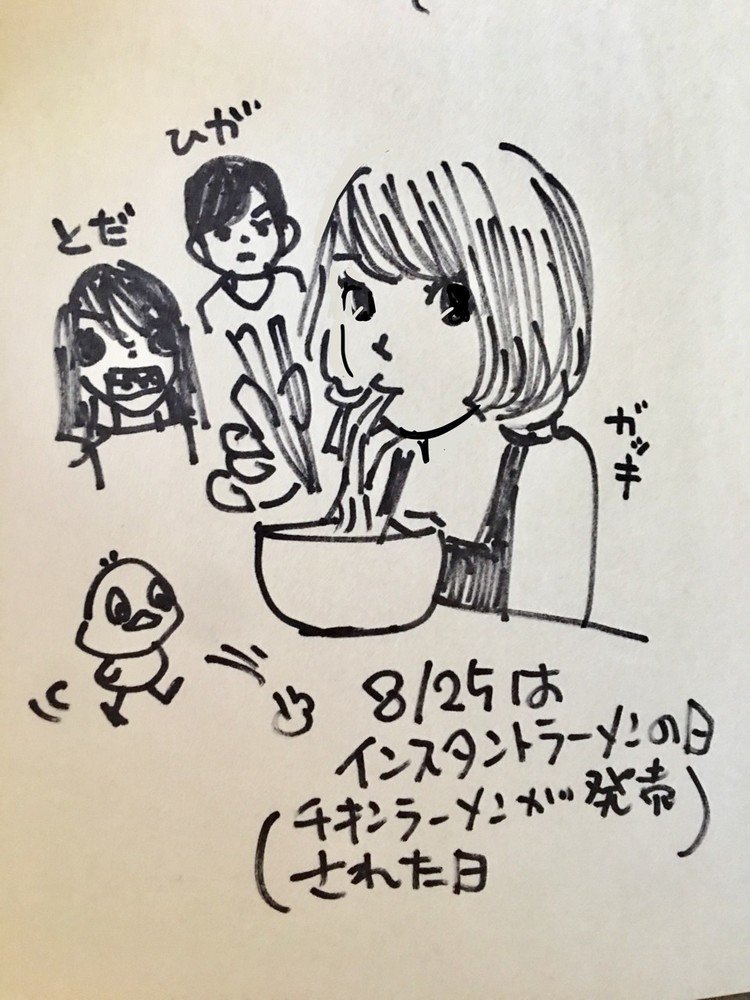 ひが
とだ
ガッキ
8/25は
インスタントラーメンの日
(チキンラーメンが発売
された日)